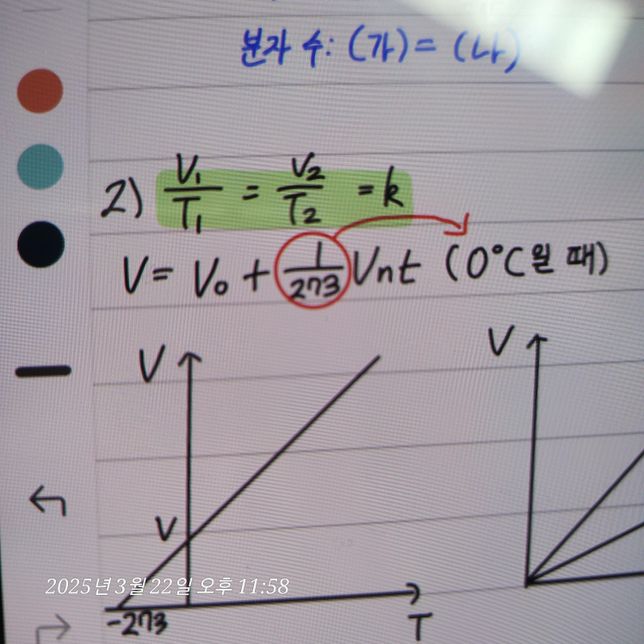 분자 수: (가) = (나)
2) V₁/T₁ = V₂/T₂ = k
V = V₀ + 1/273 Vnt (0°C일 때)
V
V
V
2025년 3월 22일 오후 11:58
-273
T